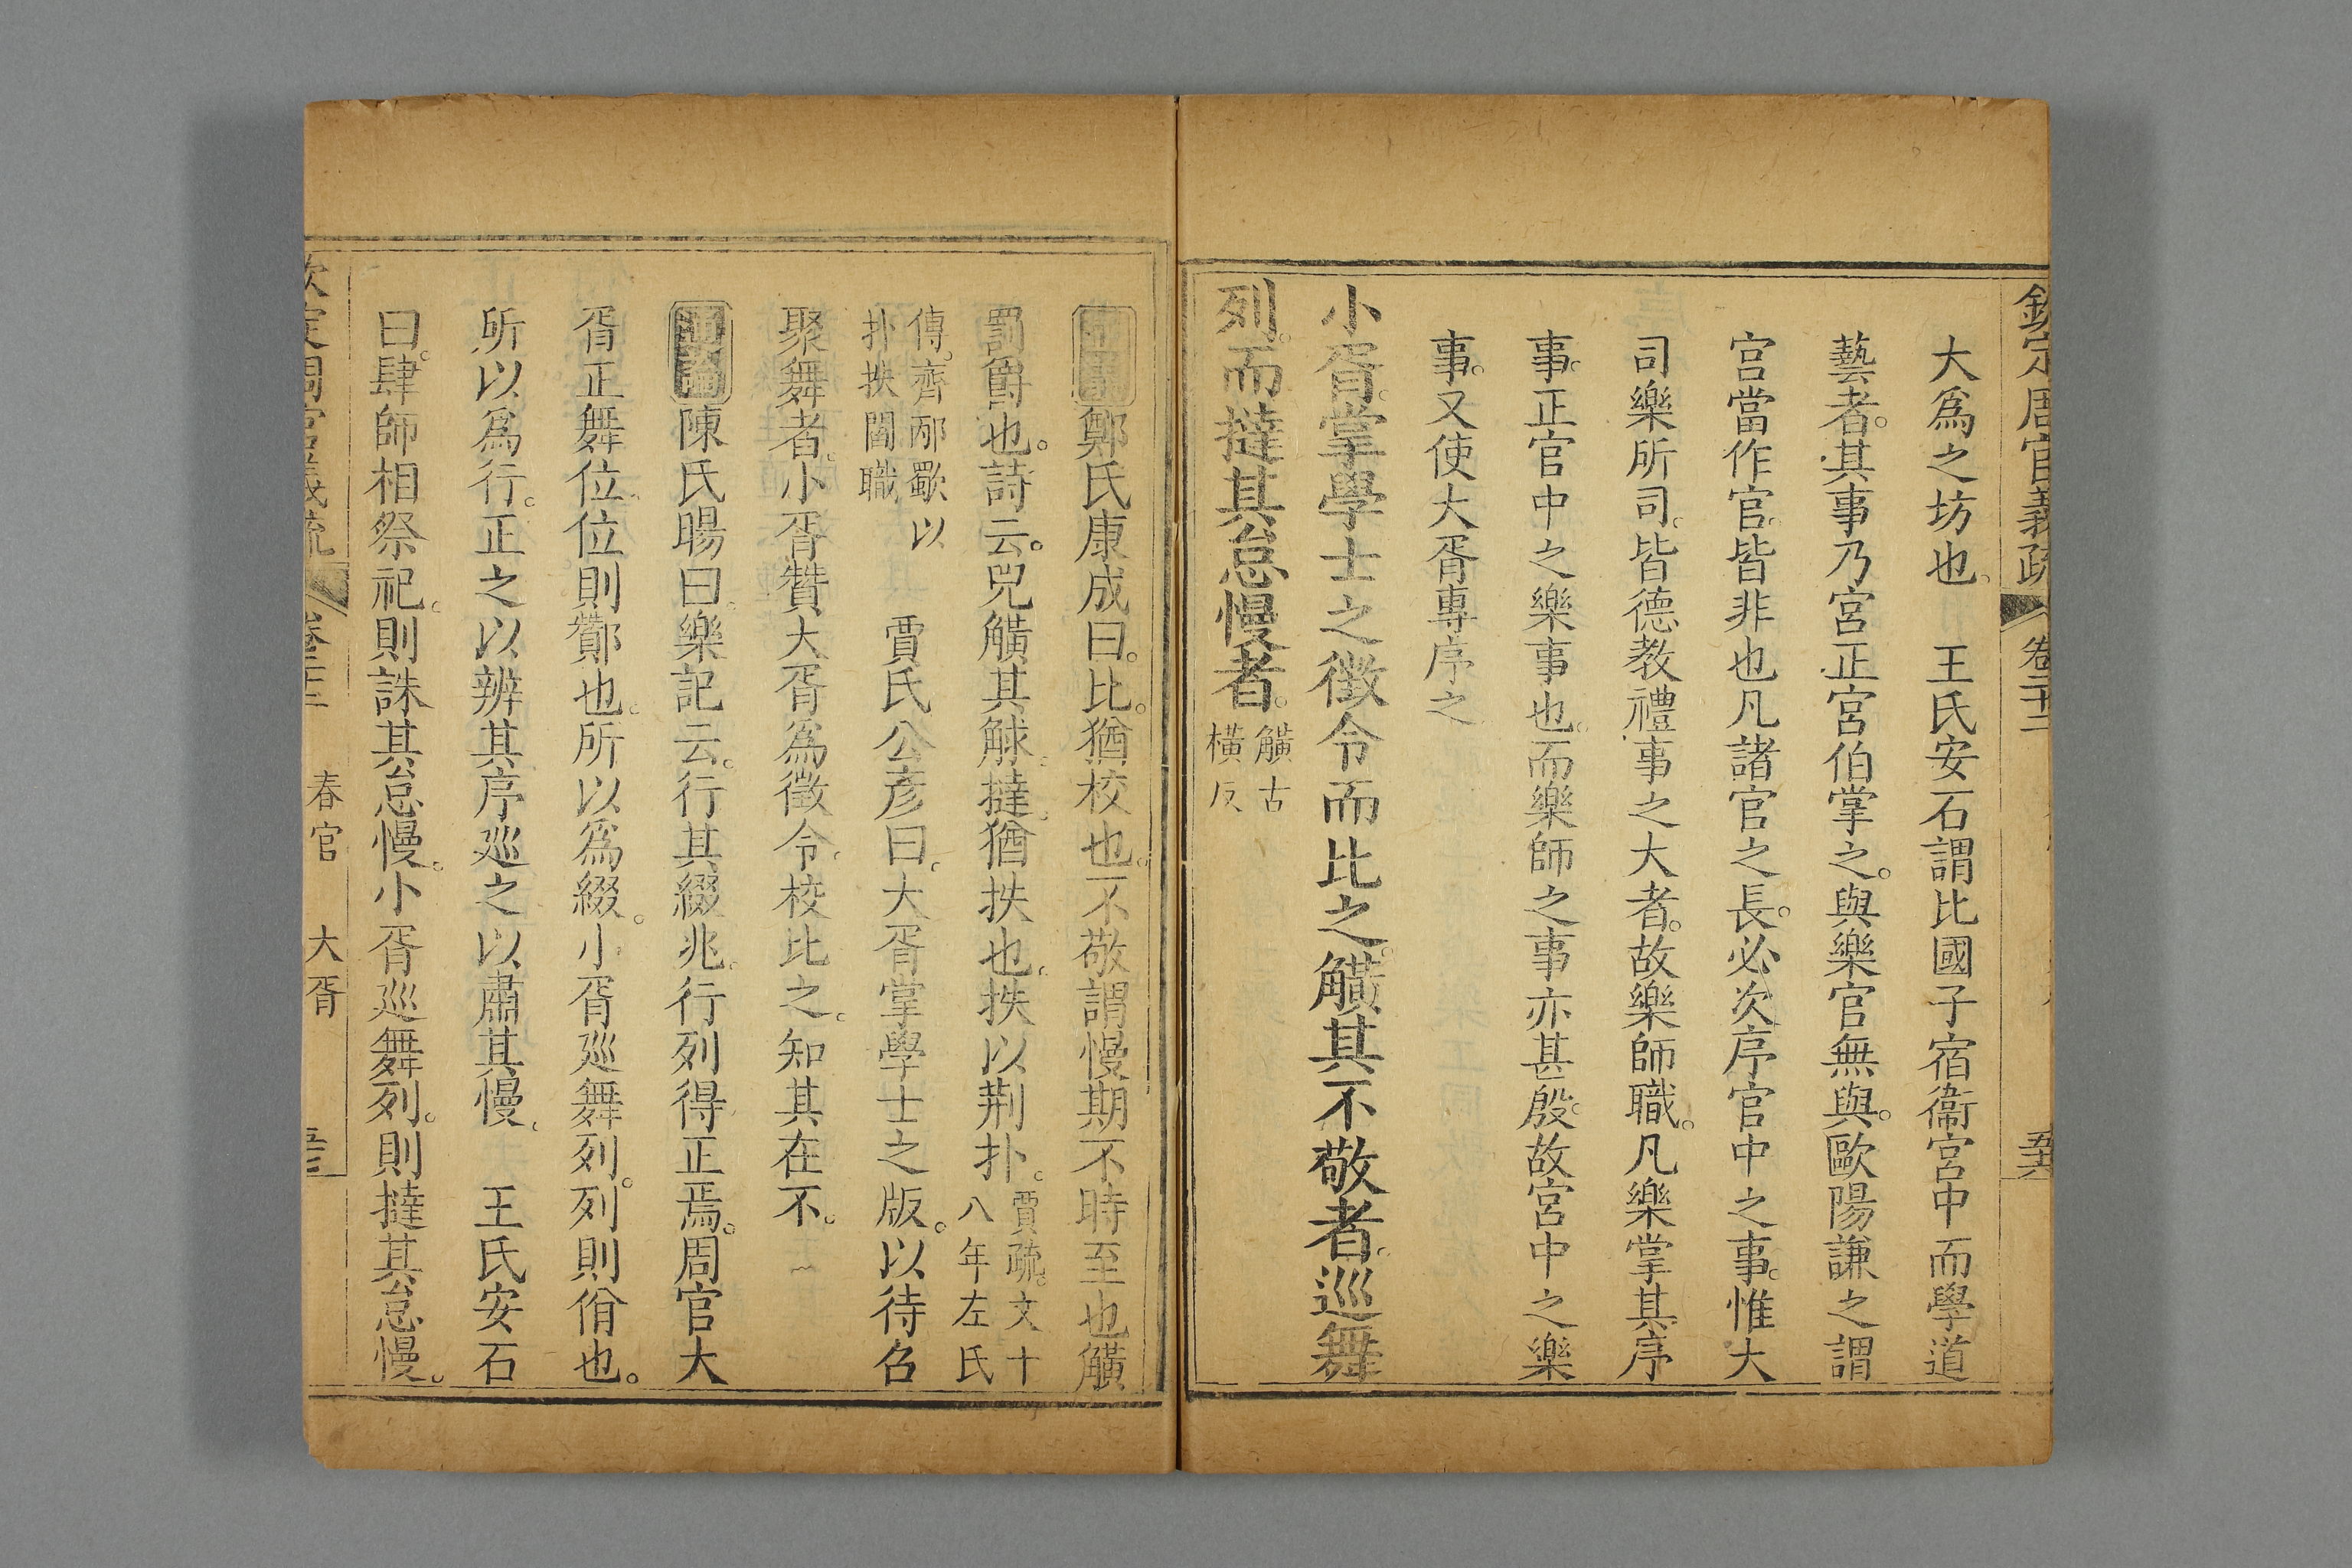 欽定周官義疏 卷二十二
大爲之坊也。 王氏安石謂比國子宿衞宮中而學道
藝者。其事乃宮正宮伯掌之。與樂官無與。歐陽謙之謂
宮當作官。皆非也凡諸官之長。必次序官中之事。惟大
司樂所司。皆德教禮事之大者。故樂師職。凡樂掌其序
事。正官中之樂事也。而樂師之事亦甚殷。故宮中之樂
事。又使大胥專序之
小胥。掌學士之徵令而比之。觵其不敬者。巡舞
列。而撻其怠慢者。觵古
橫反
鄭氏康成曰。比。猶校也。不敬謂慢期不時至也觵
罰爵也。詩云。兕觵其觩。撻。猶抶也。抶以荆扑。賈疏。文十
八年左氏
傳。齊邴歜以
扑抶閻職 賈氏公彥曰。大胥掌學士之版。以待召
聚舞者。小胥贊大胥爲徵令。校比之。知其在不。
通論 陳氏暘曰。樂記云。行其綴兆。行列得正焉。周官大
胥正舞位。位則酇也。所以爲綴。小胥巡舞列。列則佾也。
所以爲行。正之以辨其序巡之以肅其慢。 王氏安石
曰。肆師相祭祀。則誅其怠慢。小胥巡舞列。則撻其怠慢。
春官 大胥